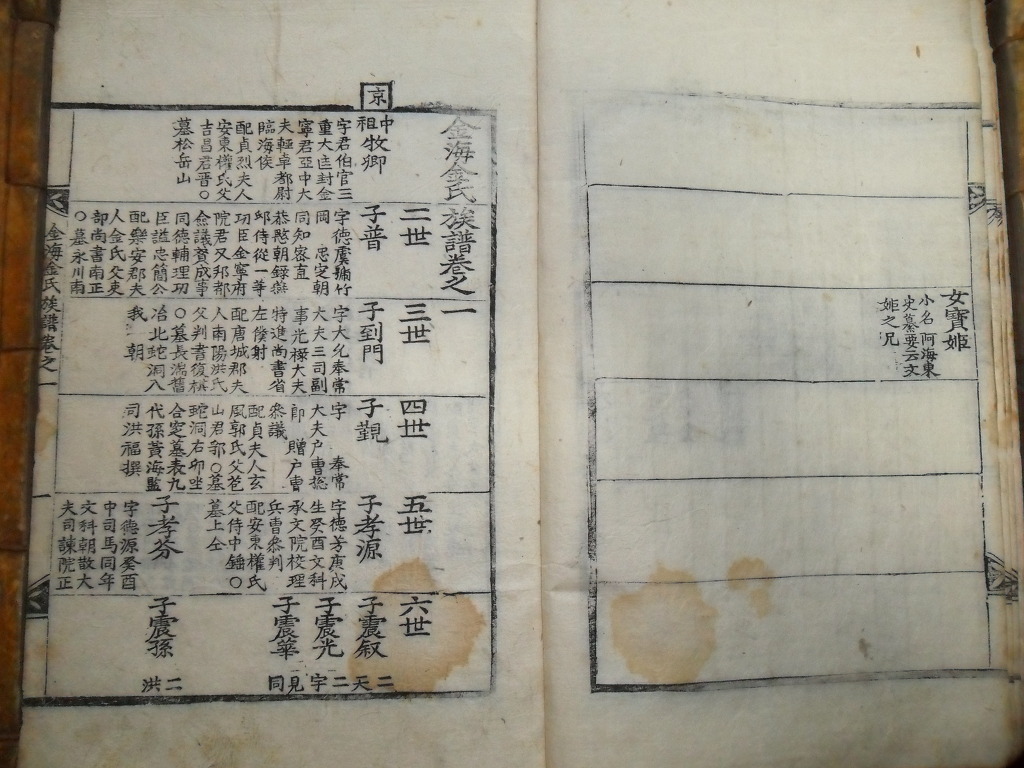 女寶姬
小名阿海東
史纂要云文
姬之兄
金海金氏族譜卷之一
京
中祖牧卿
字君伯官三
重大匡封金
寧君亞中大
夫輕卓都尉
臨海侯
配貞烈夫人
安東權氏父
吉昌君晋○
墓松岳山
二世
子普
字德虞號竹
岡 忠定朝
同知密直
恭愍朝錄燕
邸侍從一等
功臣金寧府
院君又邦都
僉議贊成事
同德輔理功
臣謚忠簡公
配樂安郡夫
人金氏父吏
部尚書南正
○墓永川南
三世
子到門
字大允奉常
大夫三司副
事光祿大夫
特進尚書省
左僕射
配唐城郡夫
人南陽洪氏
父判書復模
○墓長湍舊
治北蛇洞八
我 朝
四世
子覲
字 奉常
大夫户曹揔
郎 贈户曹
參議
配貞夫人玄
風郭氏父苞
山君郭○墓
蛇洞右卯坐
合窆墓表九
代孫黃海監
司洪福撰
五世
子孝源
字德芳庚戌
生癸酉文科
承文院校理
兵曹參判
配安東權氏
父侍中䥯○
墓上仝
子孝芬
字德源癸酉
中司馬同年
文科朝散大
夫司諫院正
六世
子震叙
二天
子震光
二字
子震華
見同
子震孫
二洪
金海金氏族譜卷之一
一